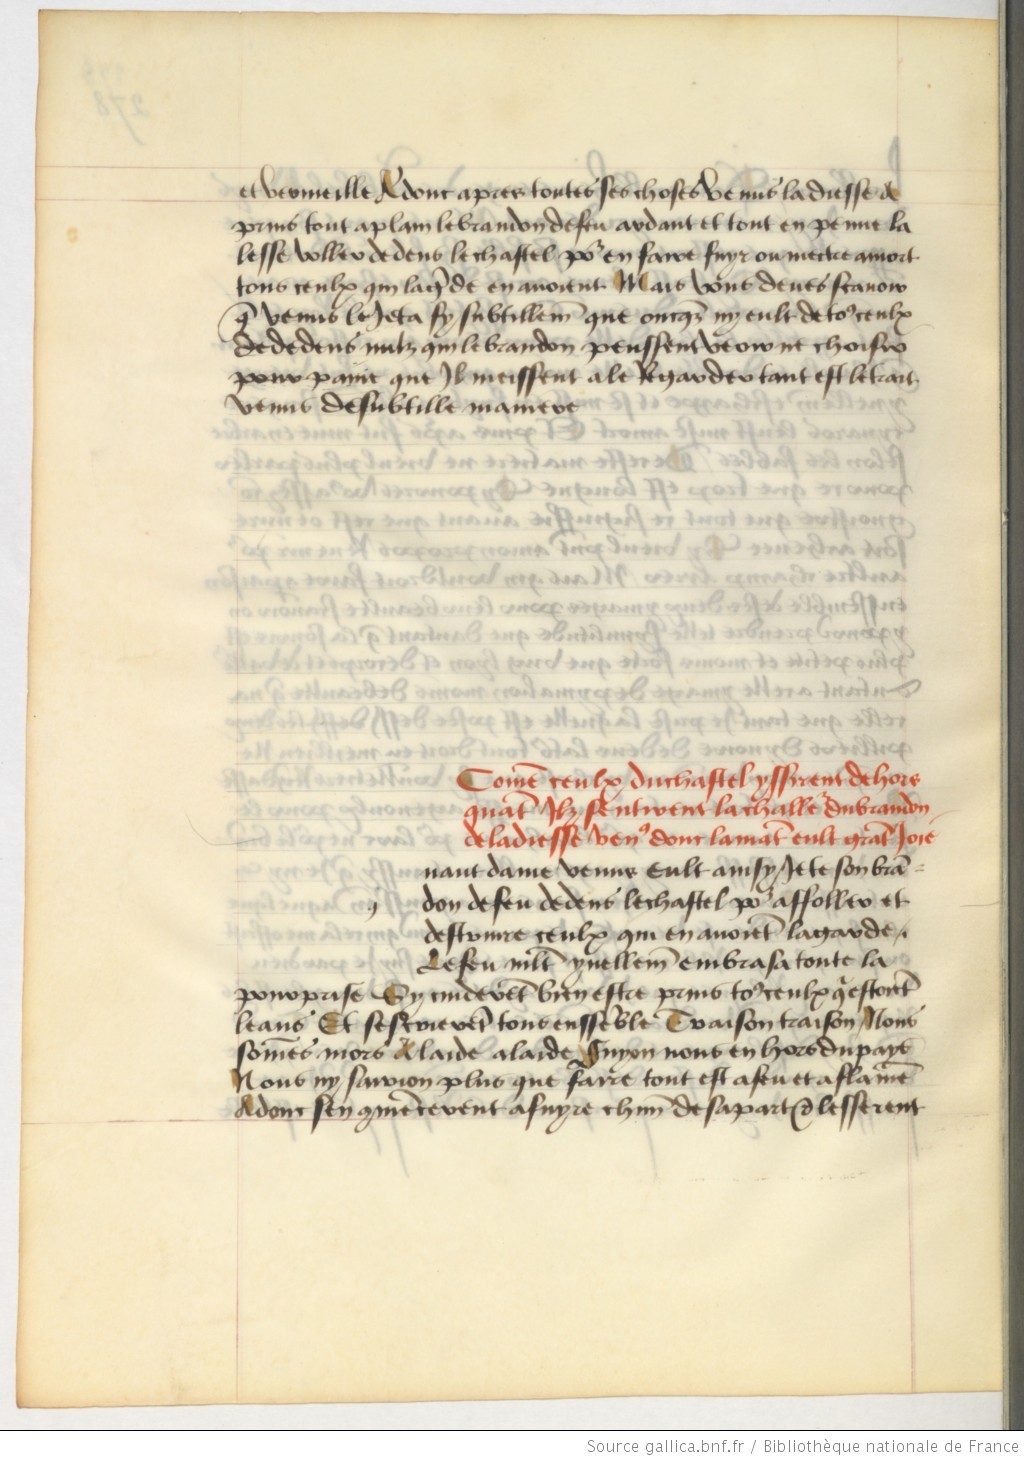 et vermeille Adonc apres toutes ses choses Venus la diesse de
prins tout aplain le brandon de feu ardant et tout en penne la
lesse voller dedens le chastel po^r en faire fuyr ou mectre a mort
tous ceulx qui la g̃de en avoient Mais vous deues scavoir
q̃ venus le Jeta sy subtillem̃ que oncq̃s ny eult de to^s ceulx
de dedens nulz qui le brandon peussent veoir ne choisir
pour paine que Jl meissent a le Regarder tant est le trait
venus de subtille maniere
Com̃e ceulx du chastel yssirent dehors
quãt Jlz sentirent la challe^r du brandon
de la diesse ven^s donc lamãt eult grãt Joie
uant dame venus eult ainsy Jete son brã
q
don de feu dedens le chastel po^r assoller et
destruire ceulx qui en avoiẽt la garde
Le feu mlt̃ ynellem̃ embrasa toute la
pourprise Sy cuiderẽt bien estre prins to^s ceulx q̃ estoiẽt
leans Et sescrierẽt tous ensẽble Traison traison Nous
som̃es mors A laide a laide fuyon nous en hors du pays
Nous ny savion plus que faire tout est a feu et a flam̃e
Adonc sen cõmẽcerent a fuyre chũn de sa part Et lesserent
Source gallica.bnf.fr / Bibliothèque nationale de France